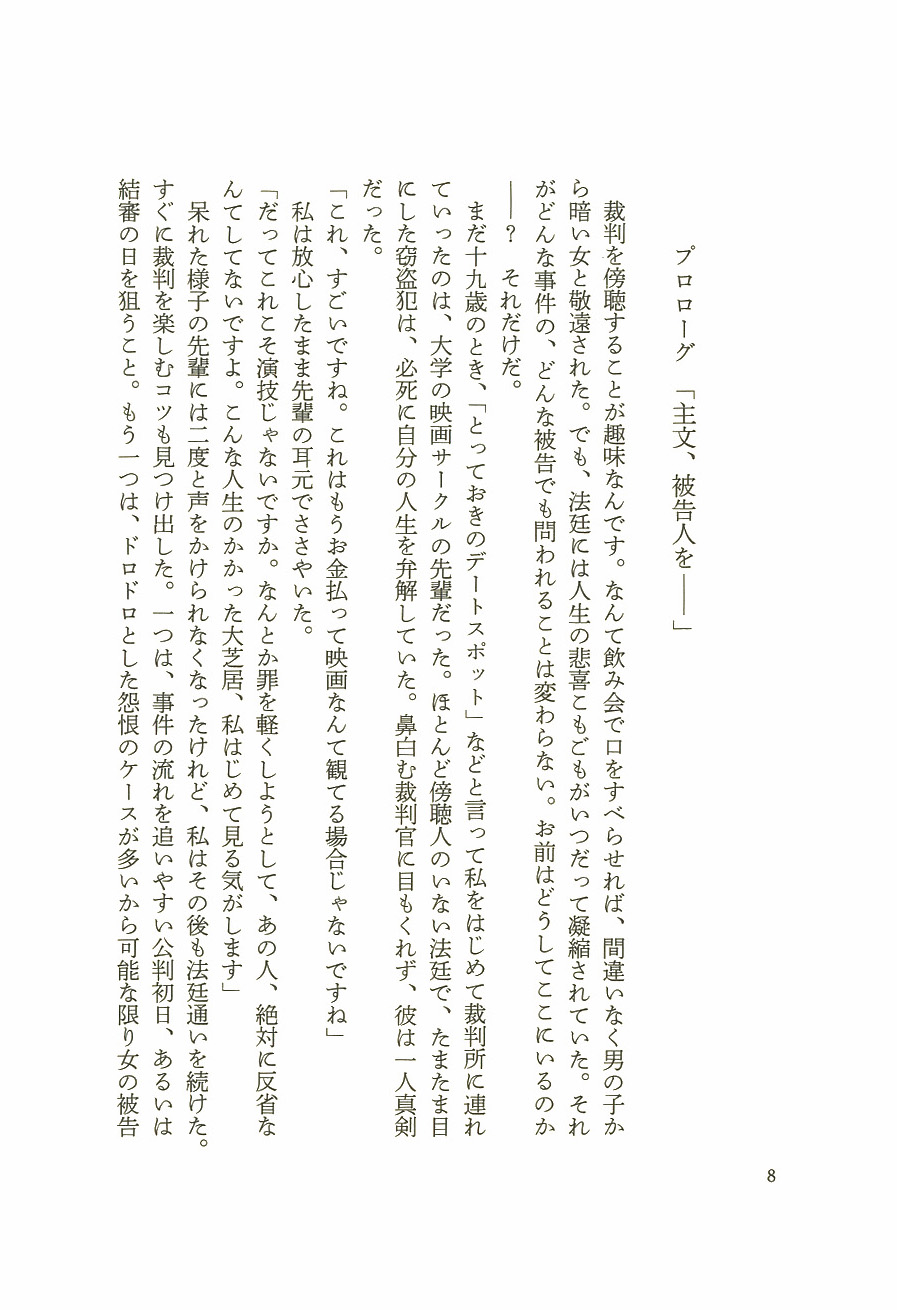 プロローグ 「主文、被告人を――」
裁判を傍聴することが趣味なんです。なんて飲み会で口をすべらせれば、間違いなく男の子か
ら暗い女と敬遠された。でも、法廷には人生の悲喜こもごもがいつだって凝縮されていた。それ
がどんな事件の、どんな被告でも問われることは変わらない。お前はどうしてここにいるのか
――? それだけだ。
まだ十九歳のとき、「とっておきのデートスポット」などと言って私をはじめて裁判所に連れ
ていったのは、大学の映画サークルの先輩だった。ほとんど傍聴人のいない法廷で、たまたま目
にした窃盗犯は、必死に自分の人生を弁解していた。鼻白む裁判官に目もくれず、彼は一人真剣
だった。
「これ、すごいですね。これはもうお金払って映画なんて観てる場合じゃないですね」
私は放心したまま先輩の耳元でささやいた。
「だってこれこそ演技じゃないですか。なんとか罪を軽くしようとして、あの人、絶対に反省な
んてしてないですよ。こんな人生のかかった大芝居、私はじめて見る気がします」
呆れた様子の先輩には二度と声をかけられなくなったけれど、私はその後も法廷通いを続けた。
すぐに裁判を楽しむコツも見つけ出した。一つは、事件の流れを追いやすい公判初日、あるいは
結審の日を狙うこと。もう一つは、ドロドロとした怨恨のケースが多いから可能な限り女の被告
8